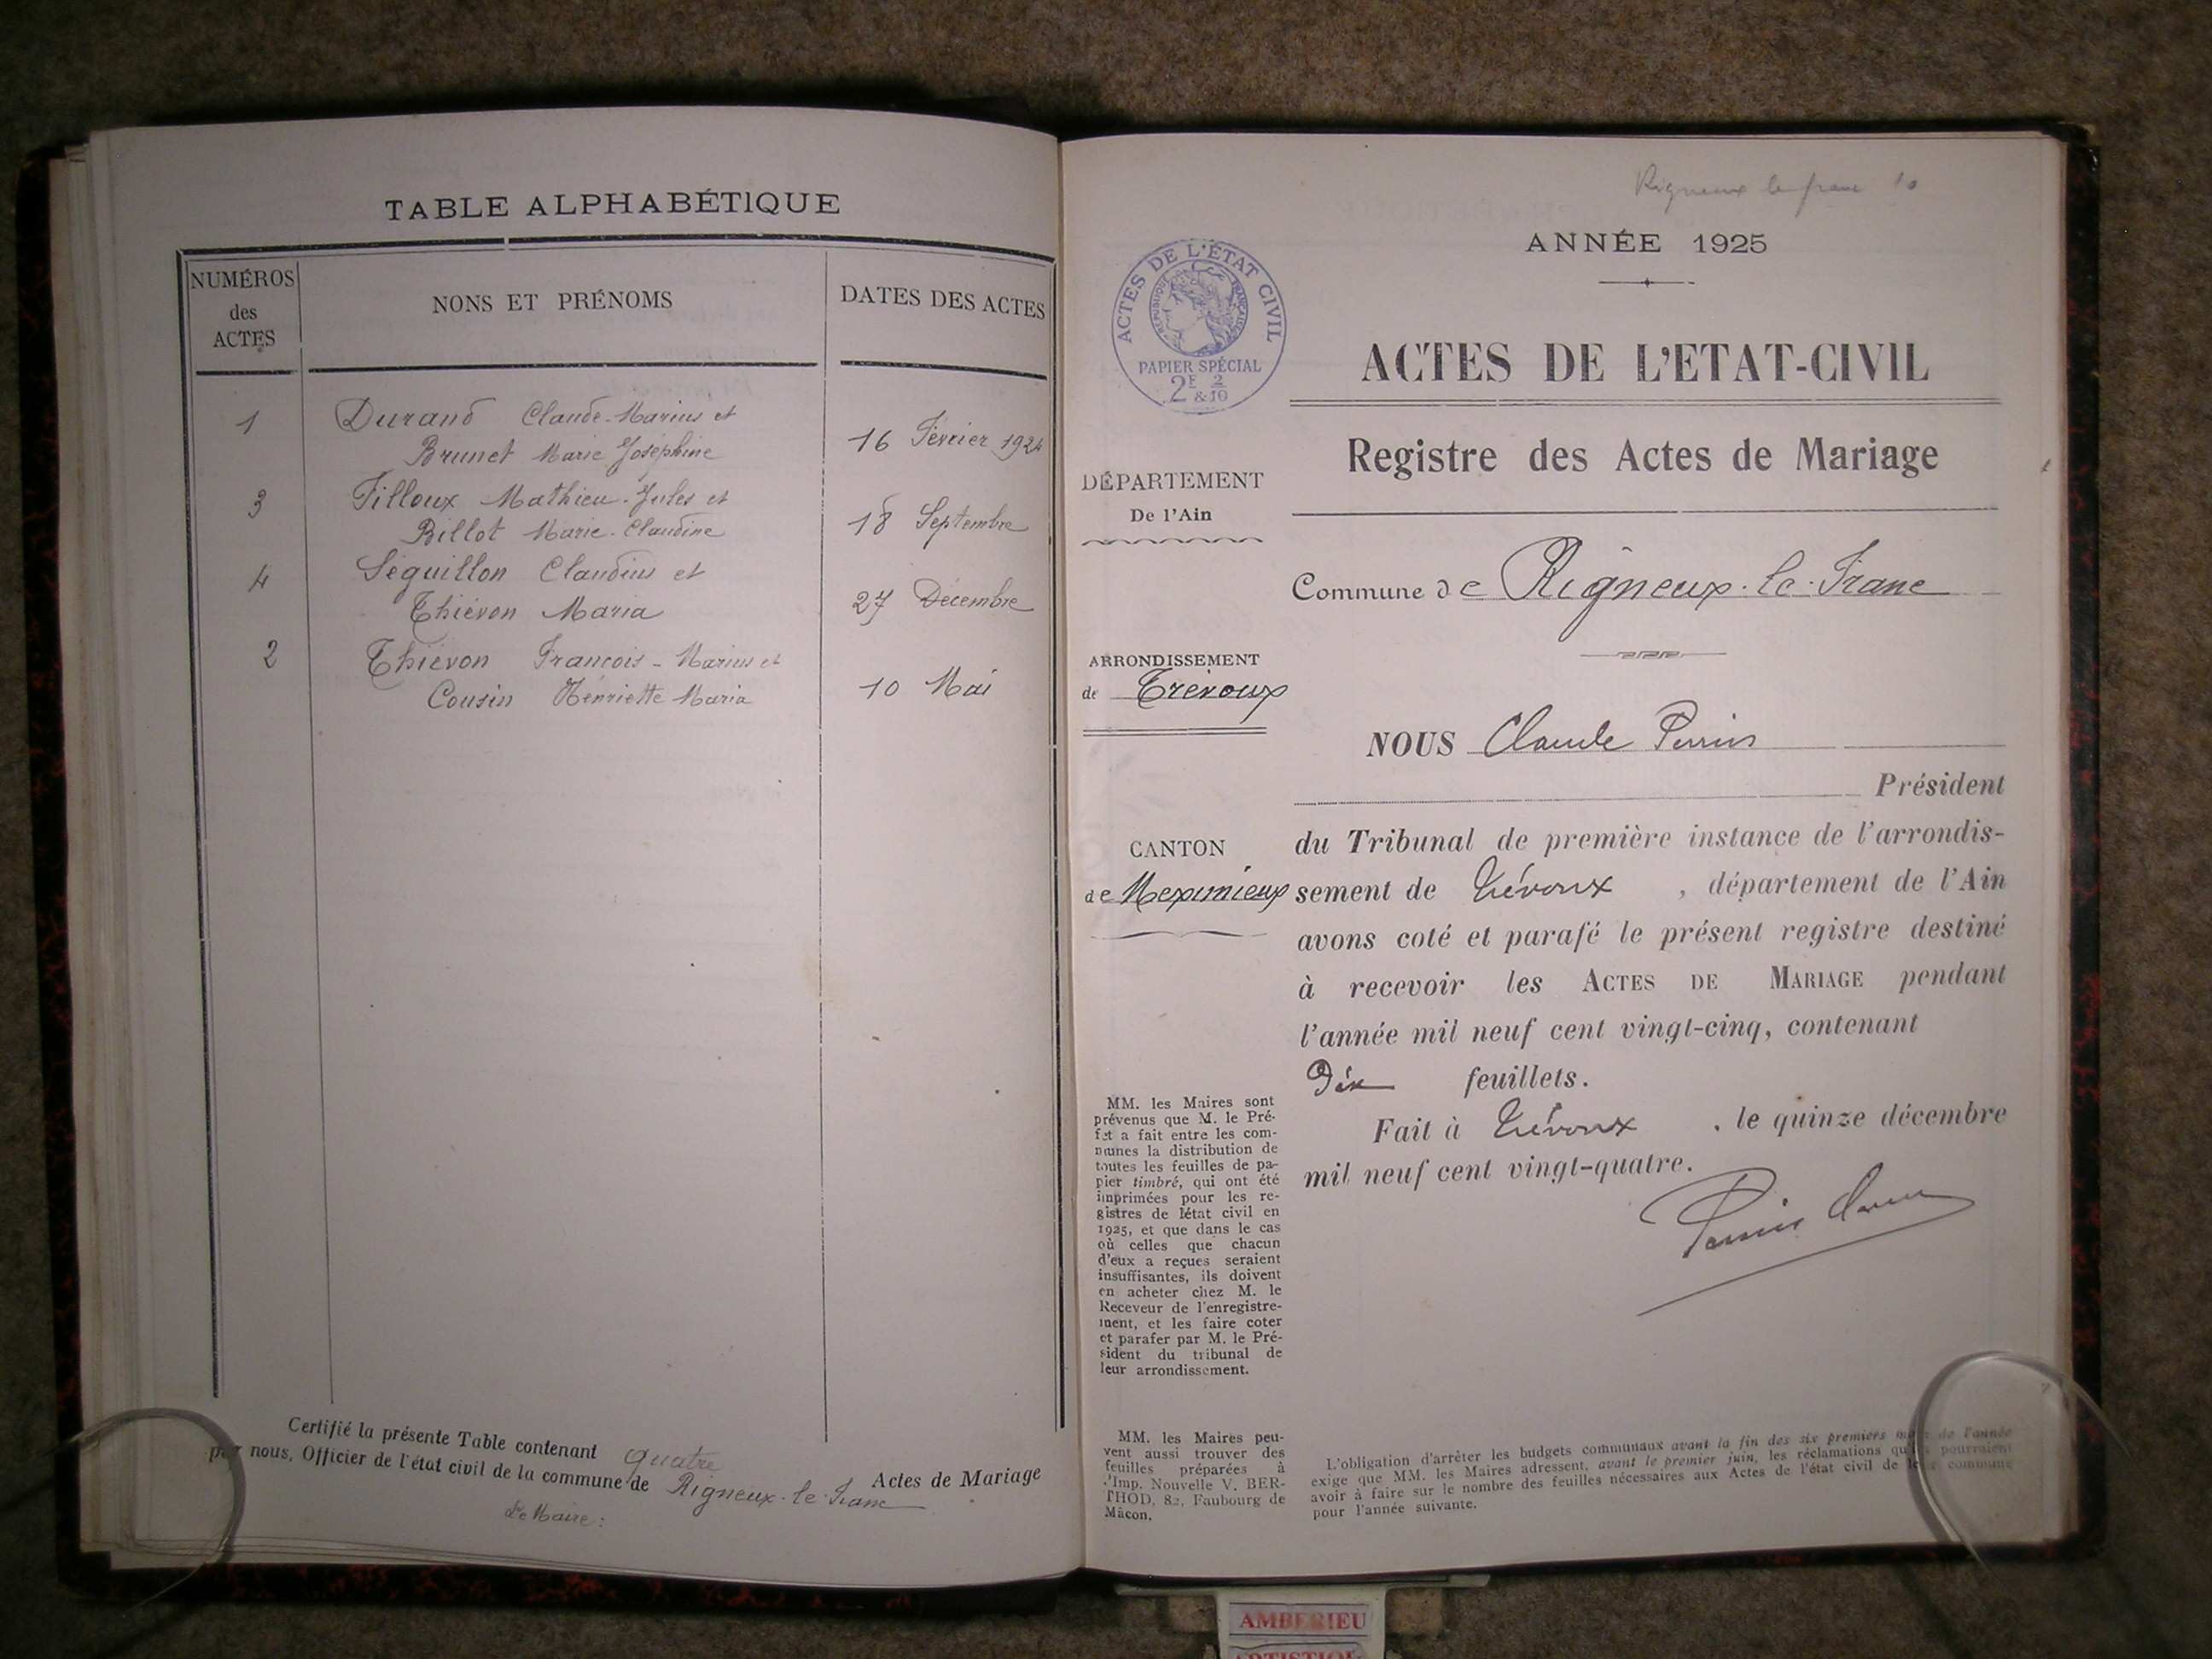 TABLE ALPHABÉTIQUE
NUMÉROS
des
ACTES
NONS ET PRÉNOMS
DATES DES ACTES
1 Durand Claude-Marius et
Brunet Marie Joséphine 16 Février 1924
3 Filloux Mathieu-Jules et
Billot Marie-Claudine 18 Septembre
4 Séguillon Claudius et
Thiévon Maria 27 Décembre
2 Thiévon François-Marius et
Cousin Henriette Maria 10 Mai
Certifié la présente Table contenant quatre Actes de Mariage
par nous, Officier de l'état civil de la commune de Rigneux-le-Franc
Le Maire:
Rigneux le franc 10
ANNÉE 1925
ACTES DE L'ÉTAT CIVIL
RÉPUBLIQUE FRANÇAISE
PAPIER SPÉCIAL
2F & 2/10
ACTES DE L'ETAT-CIVIL
Registre des Actes de Mariage
DÉPARTEMENT
De l'Ain
Commune de Rigneux-le-Franc
ARRONDISSEMENT
de Trévoux
CANTON
de Meximieux
NOUS Claude Perrin
Président
du Tribunal de première instance de l'arrondis-
sement de Trévoux, département de l'Ain
avons coté et parafé le présent registre destiné
à recevoir les ACTES DE MARIAGE pendant
l'année mil neuf cent vingt-cinq, contenant
Dix feuillets.
Fait à Trévoux, le quinze décembre
mil neuf cent vingt-quatre.
MM. les Maires sont
prévenus que M. le Pré-
fet a fait entre les com-
munes la distribution de
toutes les feuilles de pa-
pier timbré, qui ont été
imprimées pour les re-
gistres de létat civil en
1925, et que dans le cas
où celles que chacun
d'eux a reçues seraient
insuffisantes, ils doivent
en acheter chez M. le
Receveur de l'enregistre-
ment, et les faire coter
et parafer par M. le Pré-
sident du tribunal de
leur arrondissement.
MM. les Maires peu-
vent aussi trouver des
feuilles préparées à
l'Imp. Nouvelle V. BER-
THOD, 82, Faubourg de
Mâcon.
L'obligation d'arrêter les budgets communaux avant la fin des six premiers mois de l'année
exige que MM. les Maires adressent, avant le premier juin, les réclamations qu'ils pourraient
avoir à faire sur le nombre des feuilles nécessaires aux Actes de l'état civil de leur commune
pour l'année suivante.
AMBERIEU